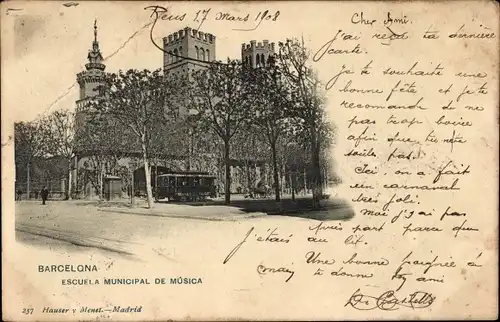 Reus 17 Mars 1908
Cher Ami.
J'ai reçu ta dernière
carte.
Je te souhaite une
bonne fête et je te
recomande de ne pas
trop boire
afin que tu ne te
soûles pas.
Ici on a fait
un carnaval
très joli.
Moi j'ai pas
pris part para que
J'étais au lit.
Une bonne poignée à
te donne ton ami
BARCELONA
ESCUELA MUNICIPAL DE MÚSICA
257 Hauser y Menet.—Madrid